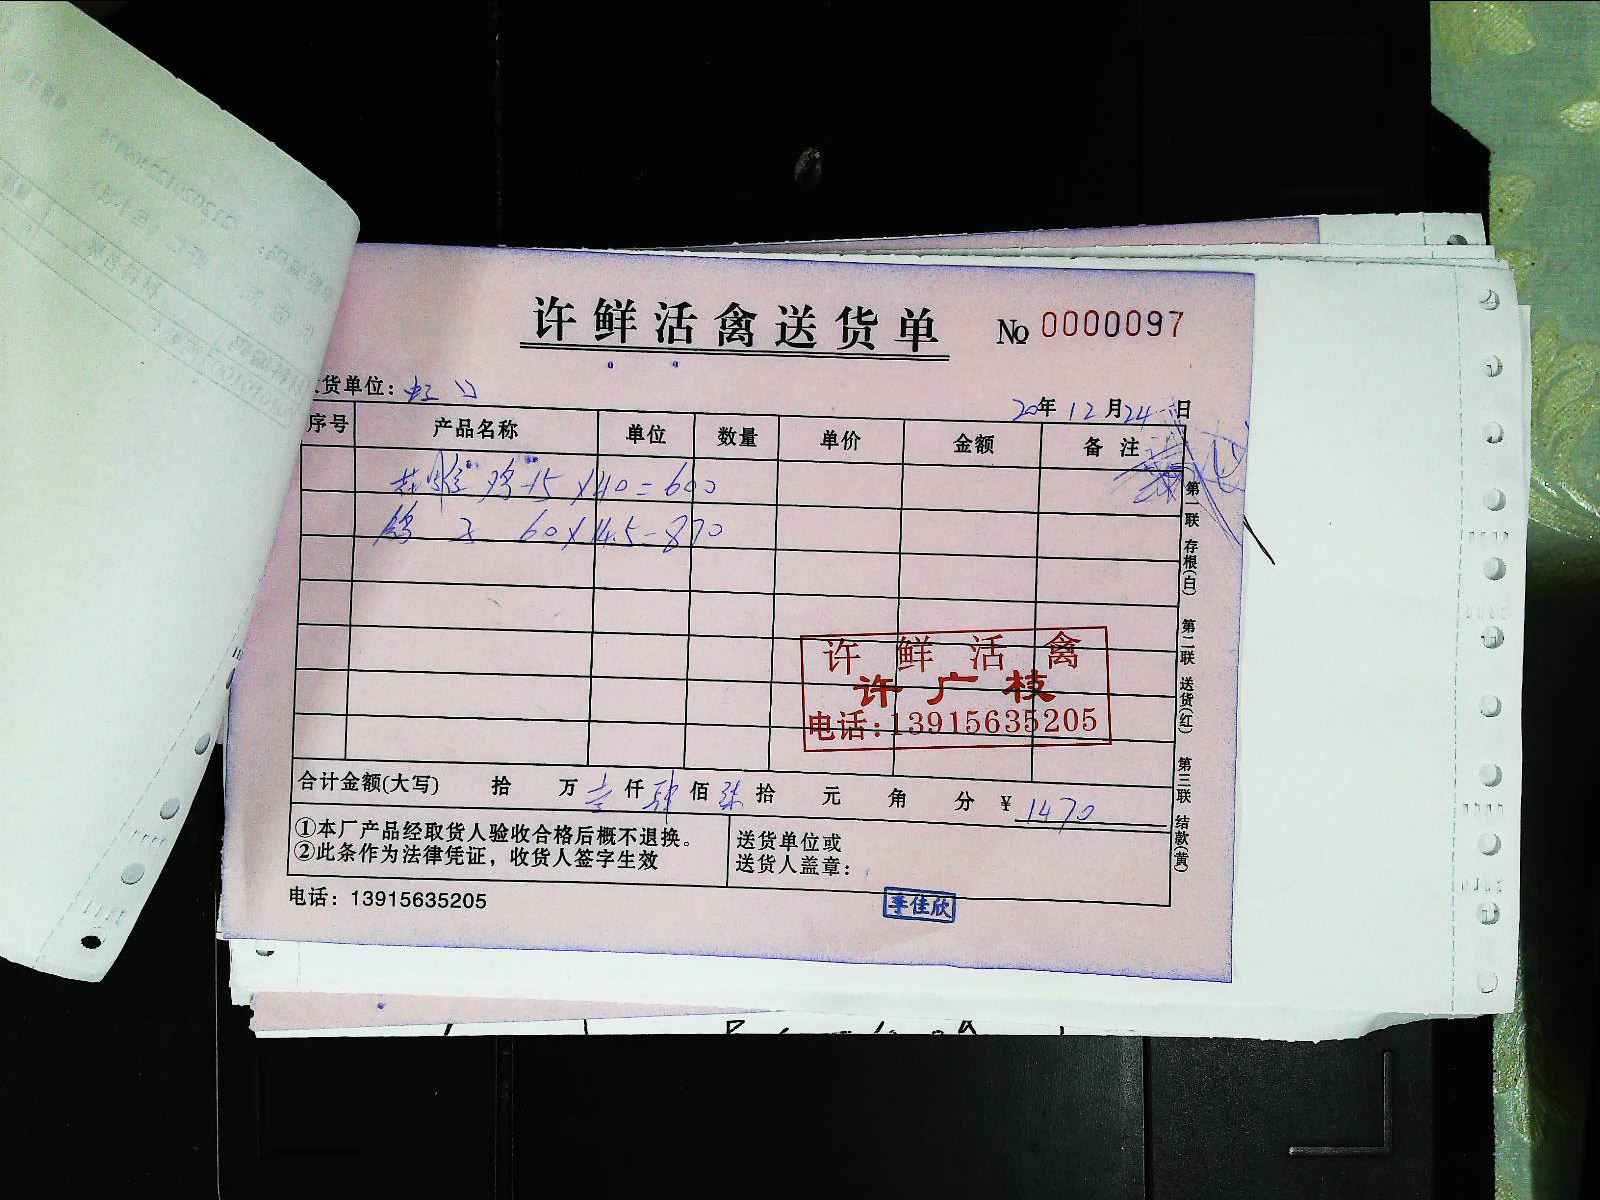 许鲜活禽送货单 No 0000097
货单位：虹口
20年12月24日
序号 产品名称 单位 数量 单价 金额 备注
鸡 15×40=600
鸽子 60×14.5=870
许鲜活禽
许广枝
电话：13915635205
合计金额(大写) 拾 万壹仟肆佰柒拾 元 角 分 ￥1470
①本厂产品经取货人验收合格后概不退换。
②此条作为法律凭证，收货人签字生效
送货单位或
送货人盖章：
李佳欣
电话：13915635205
第一联 存根(白) 第二联 送货(红) 第三联 结款(黄)